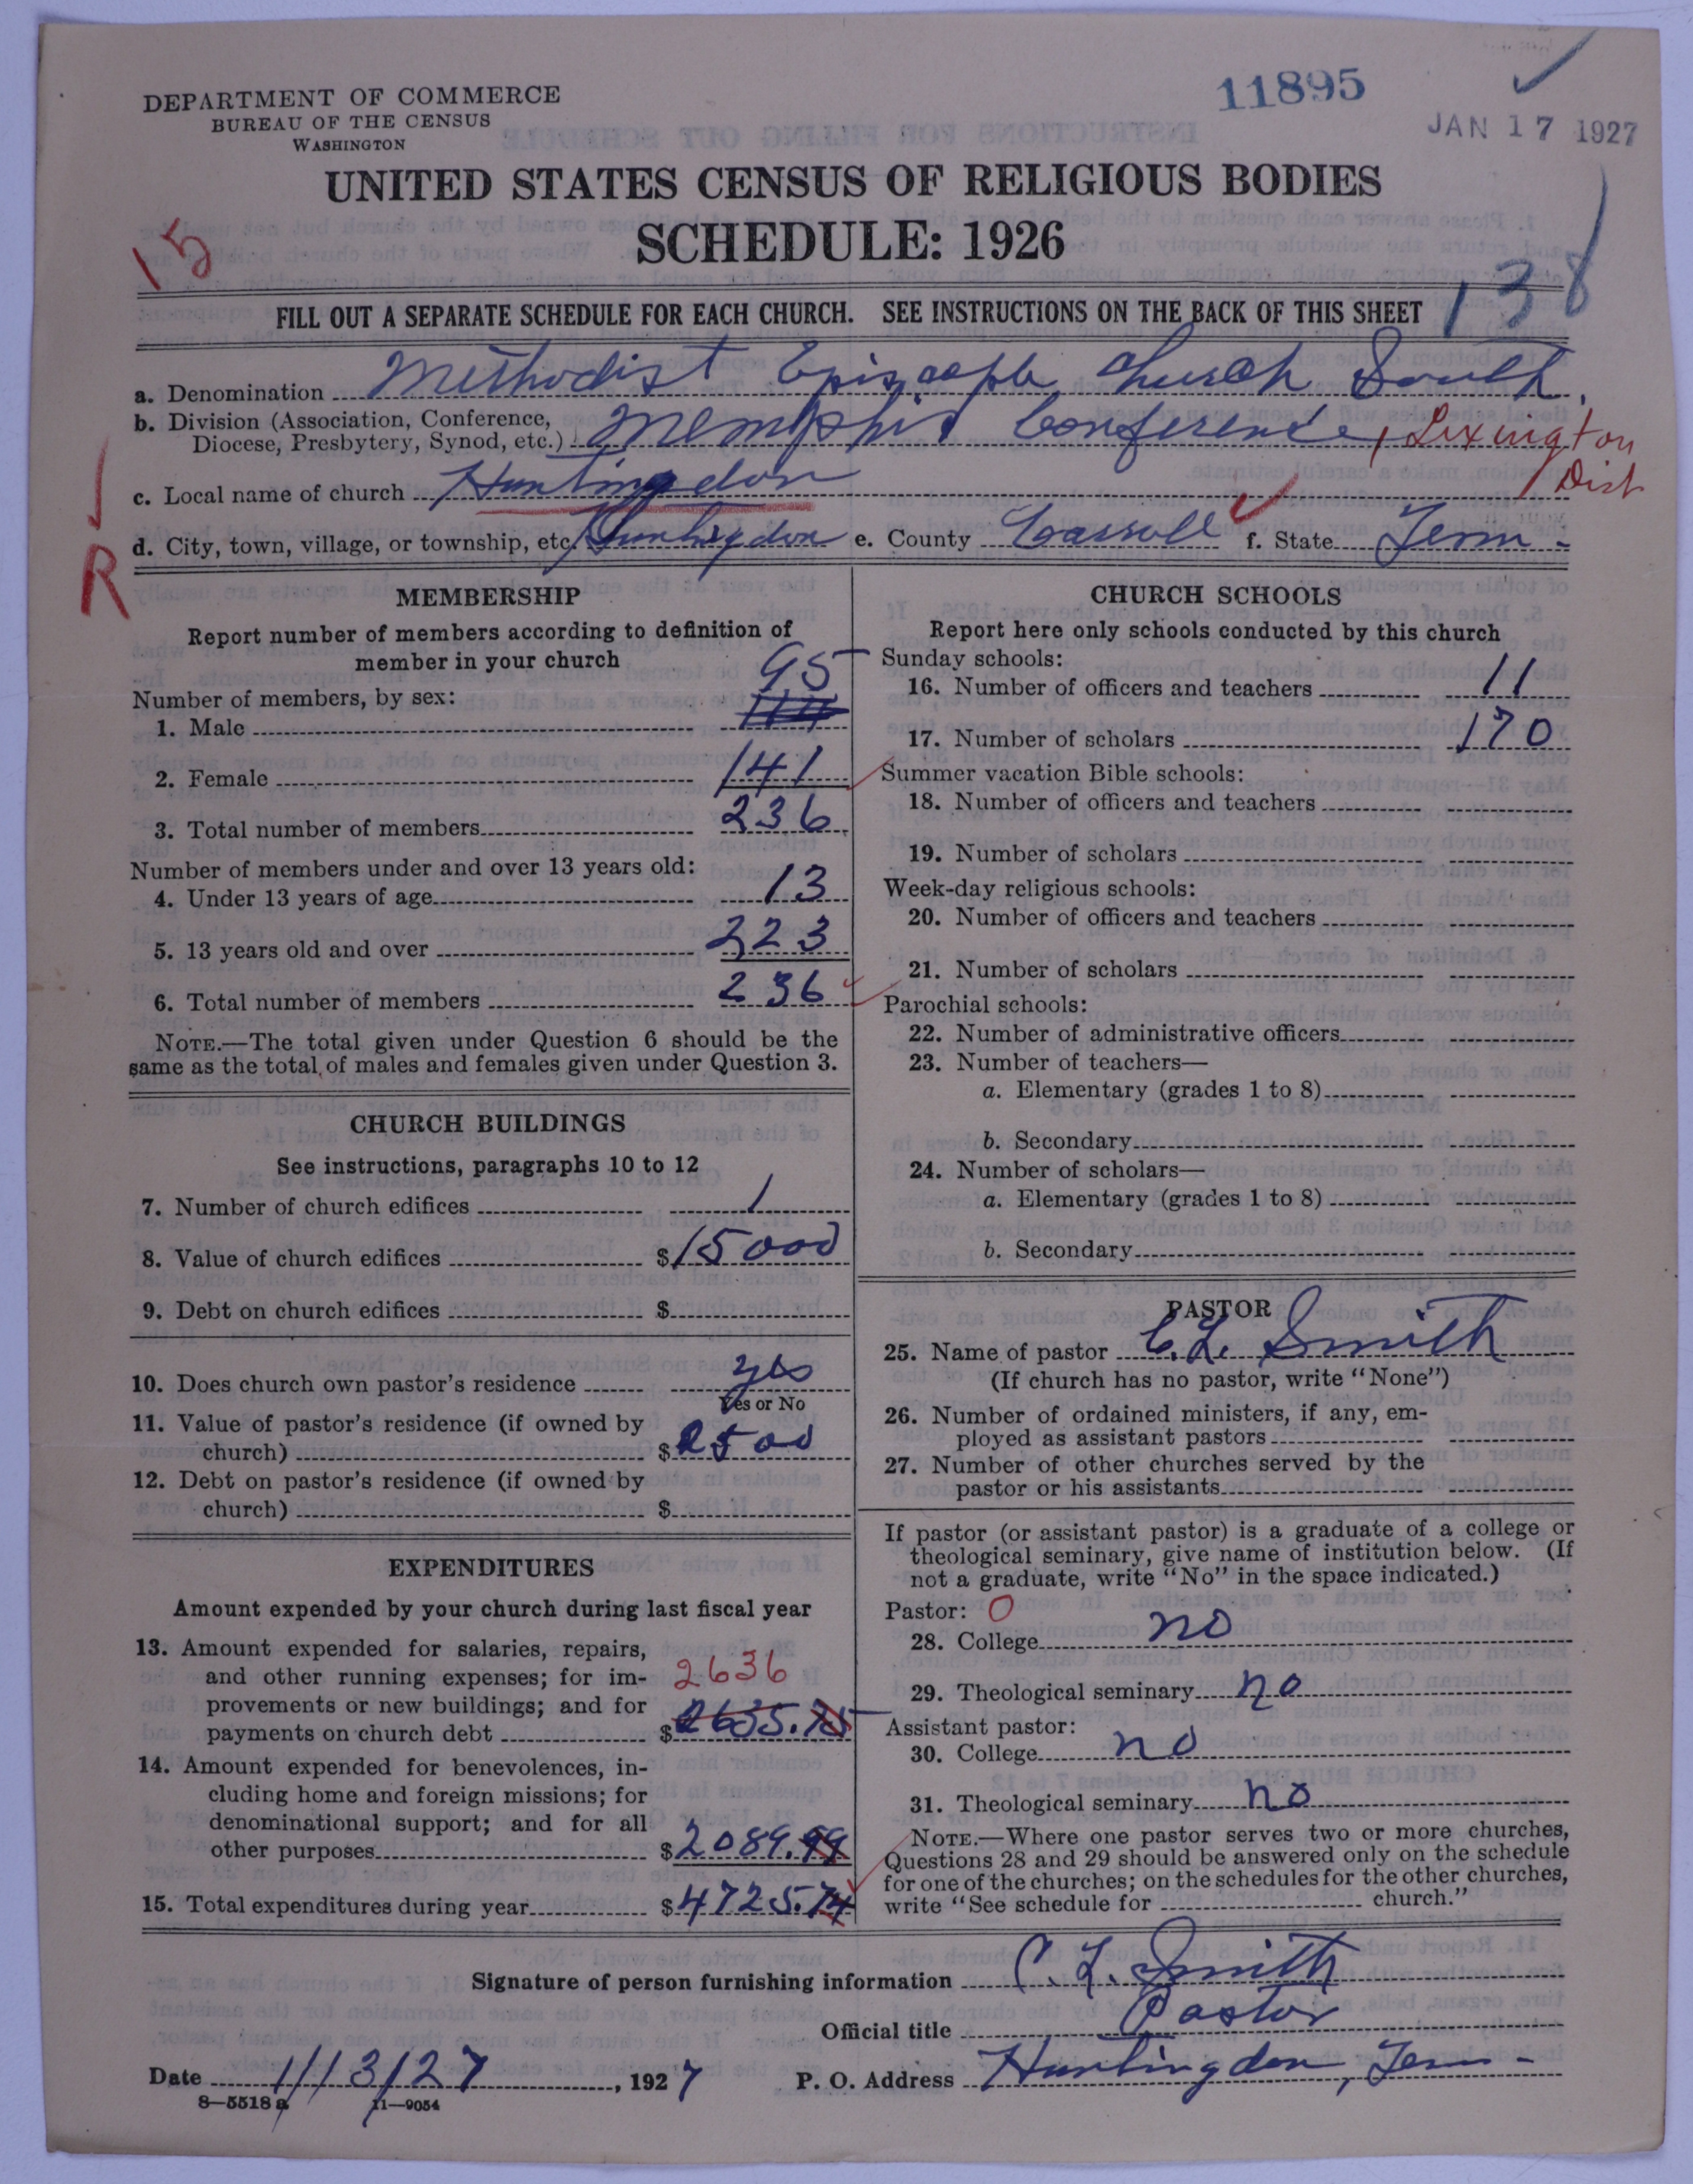 11895
JAN 17 1927
DEPARTMENT OF COMMERCE
BUREAU OF THE CENSUS
WASHINGTON
UNITED STATES CENSUS OF RELIGIOUS BODIES
SCHEDULE: 1926
15
138
FILL OUT A SEPARATE SCHEDULE FOR EACH CHURCH. SEE INSTRUCTIONS ON THE BACK OF THIS SHEET
a. Denomination Methodist Episcople Church South.
b. Division (Association, Conference,
Diocese, Presbytery, Synod, etc.) Memphis Conference, Lexington
Dist
c. Local name of church Huntingdon
d. City, town, village, or township, etc. Huntingdon e. County Carroll f. State Tenn.
R
MEMBERSHIP
Report number of members according to definition of
member in your church
Number of members, by sex:
1. Male 95
2. Female 141
3. Total number of members 236
Number of members under and over 13 years old:
4. Under 13 years of age 13
5. 13 years old and over 223
6. Total number of members 236
NOTE.—The total given under Question 6 should be the
same as the total of males and females given under Question 3.
CHURCH BUILDINGS
See instructions, paragraphs 10 to 12
7. Number of church edifices 1
8. Value of church edifices $15000
9. Debt on church edifices $
10. Does church own pastor's residence yes
Yes or No
11. Value of pastor's residence (if owned by
church) $2500
12. Debt on pastor's residence (if owned by
church) $
EXPENDITURES
Amount expended by your church during last fiscal year
13. Amount expended for salaries, repairs,
and other running expenses; for im- 2636
provements or new buildings; and for
payments on church debt $2635.75
14. Amount expended for benevolences, in-
cluding home and foreign missions; for
denominational support; and for all
other purposes $2089.99
15. Total expenditures during year $4725.74
CHURCH SCHOOLS
Report here only schools conducted by this church
Sunday schools:
16. Number of officers and teachers 11
17. Number of scholars 170
Summer vacation Bible schools:
18. Number of officers and teachers
19. Number of scholars
Week-day religious schools:
20. Number of officers and teachers
21. Number of scholars
Parochial schools:
22. Number of administrative officers
23. Number of teachers—
a. Elementary (grades 1 to 8)
b. Secondary
24. Number of scholars—
a. Elementary (grades 1 to 8)
b. Secondary
PASTOR
25. Name of pastor C.L. Smith
(If church has no pastor, write "None")
26. Number of ordained ministers, if any, em-
ployed as assistant pastors
27. Number of other churches served by the
pastor or his assistants
If pastor (or assistant pastor) is a graduate of a college or
theological seminary, give name of institution below. (If
not a graduate, write "No" in the space indicated.)
Pastor: 0
28. College no
29. Theological seminary no
Assistant pastor:
30. College no
31. Theological seminary no
NOTE.—Where one pastor serves two or more churches,
Questions 28 and 29 should be answered only on the schedule
for one of the churches; on the schedules for the other churches,
write "See schedule for church."
Signature of person furnishing information C. L. Smith
Official title Pastor
Date 1/13/27, 1927 P. O. Address Huntingdon, Tenn.
8—5518 a 11—9054